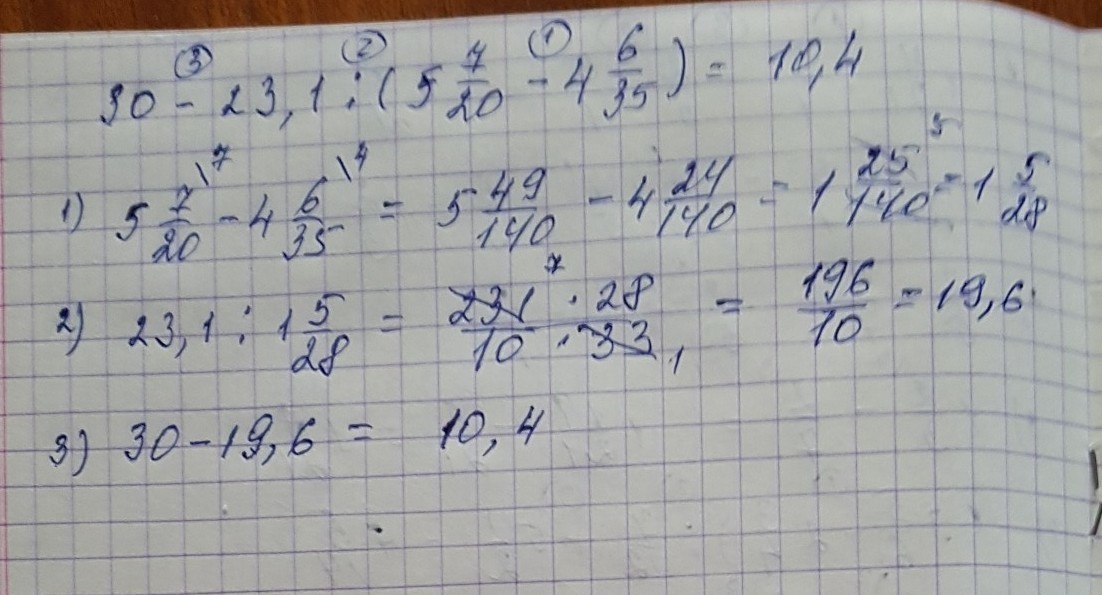 ③ ② ①
30 - 23,1 : (5 7/20 - 4 6/35) = 10,4
1) 5 7/20 \7 - 4 6/35 \4 = 5 49/140 - 4 24/140 = 1 25/140 5 = 1 5/28
2) 23,1 : 1 5/28 = 231 7 · 28 / 10 · 33 1 = 196/10 = 19,6
3) 30 - 19,6 = 10,4